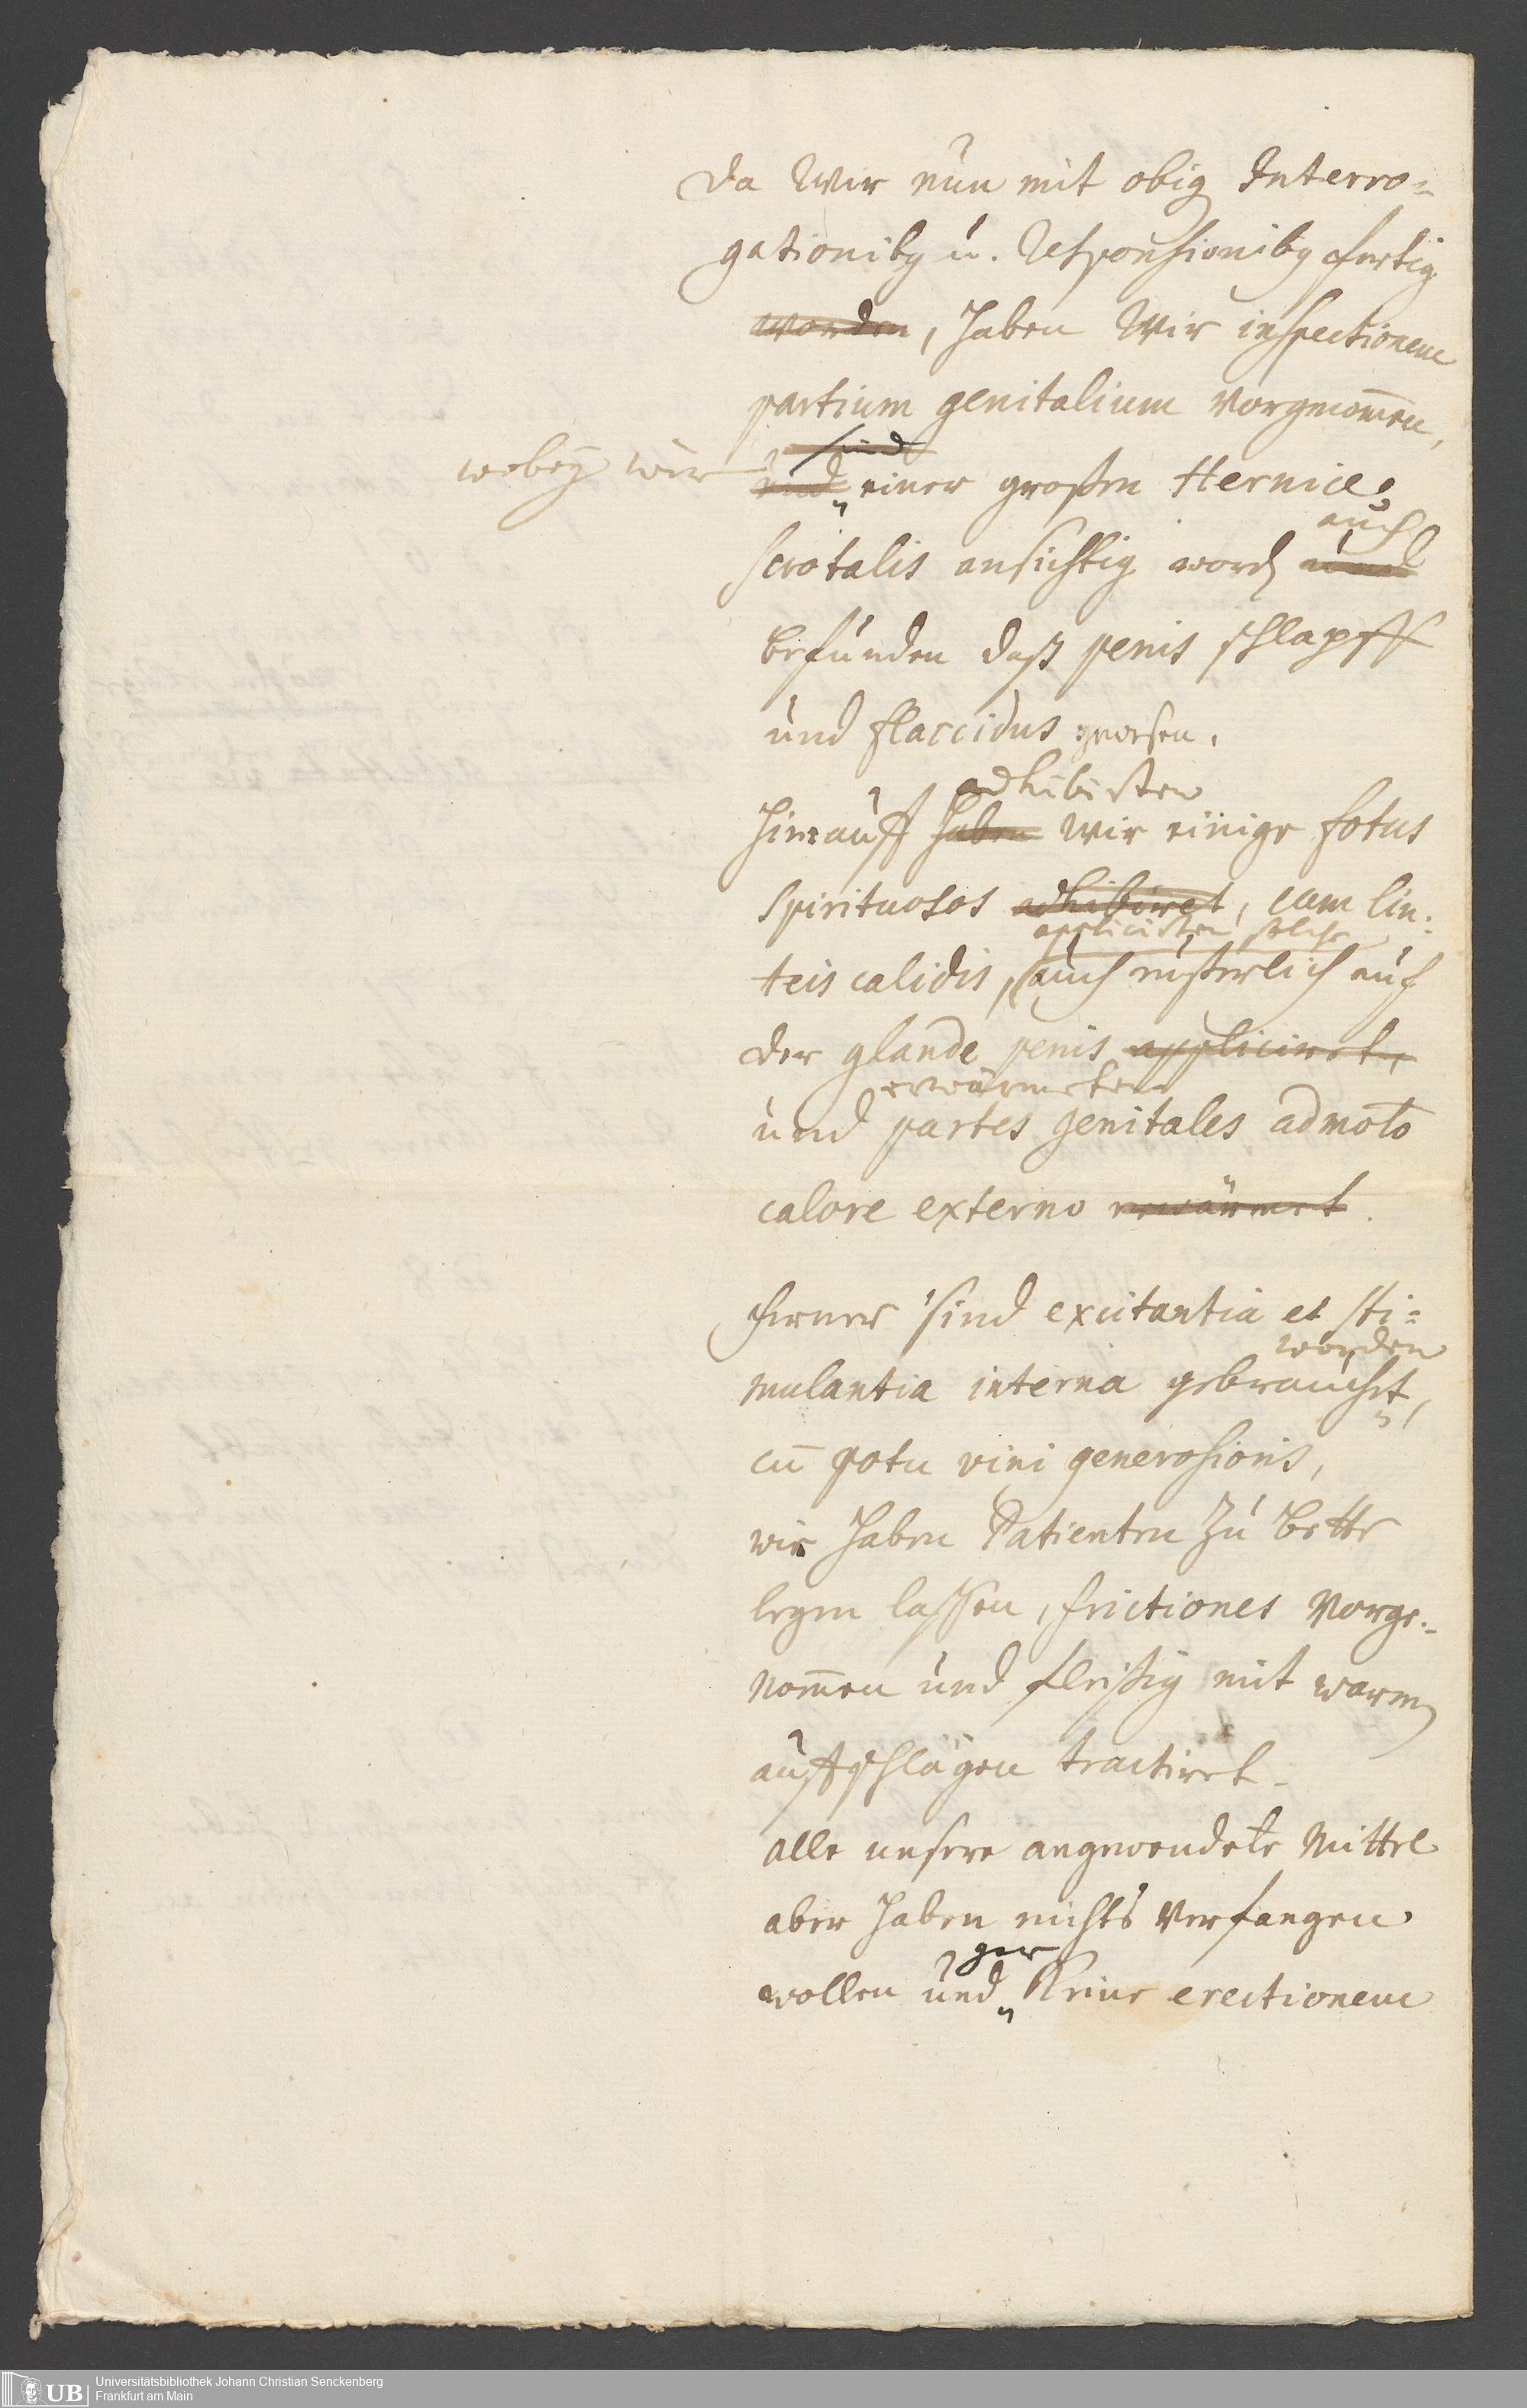 Da Wir nun mit obig Interro-
gationibg u. Responsionibg fertig
worden, haben Wir inspectionem
partium genitalium vorgenom̄en,
sind
wobey wir und einer großen Herniae
auch
scrotalis ansichtig word und
befunden daß penis schlapff
und flaccidus gewesen.
adhibirten
hierauff haben wir einige fotus
spirituosos adhibiret, cum lin-
applicirten solche
teis calidis, auch eußerlich auf
der glande penis appliciret,
erwärmeten
und partes genitales admoto
calore externo erwärmet.
ferner sind excitantia et sti-
worden
mulantia interna gebrauchet,
cū potu vini generosioris,
wir haben Patienten zu bette
legen lassen, frictiones vorge-
nom̄en und fleißig mit warm
auffschlägen tractiret.
alle unsere angewendete Mittel
aber haben nichts verfangen
gar
wollen und keine erectionem
Universitätsbibliothek Johann Christian Senckenberg
UB Frankfurt am Main